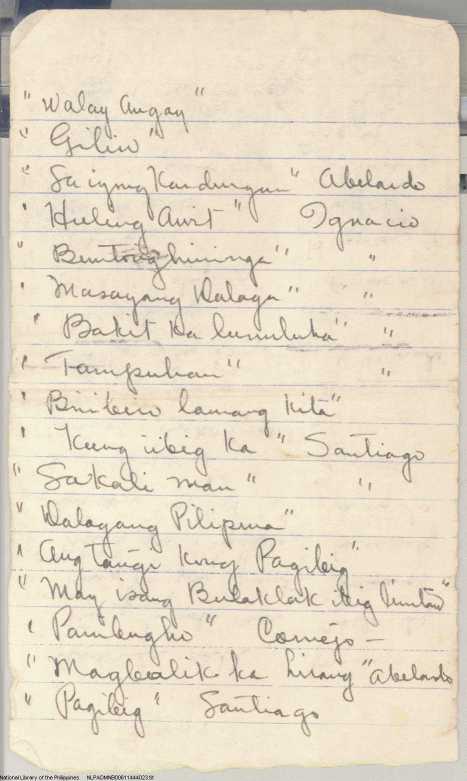 "Walay Angay"
"Giliw"
"Sa iyong Kandungan" Abelardo
"Huling Awit" Ignacio
"Buntong hininga" "
"Masayang Dalaga" "
"Bakit ka lumuluha" "
"Tampuhan" "
"Binibiro lamang kita"
"Kung iibig ka" Santiago
"Sakali man" "
"Dalagang Pilipina"
"Ang Tangi kong Pagibig"
"May isang Bulaklak ibig
"Panibugho" Cornejo -
"Magbalik ka hirang" Abelardo
"Pagibig" Santiago
National Library of the Philippines